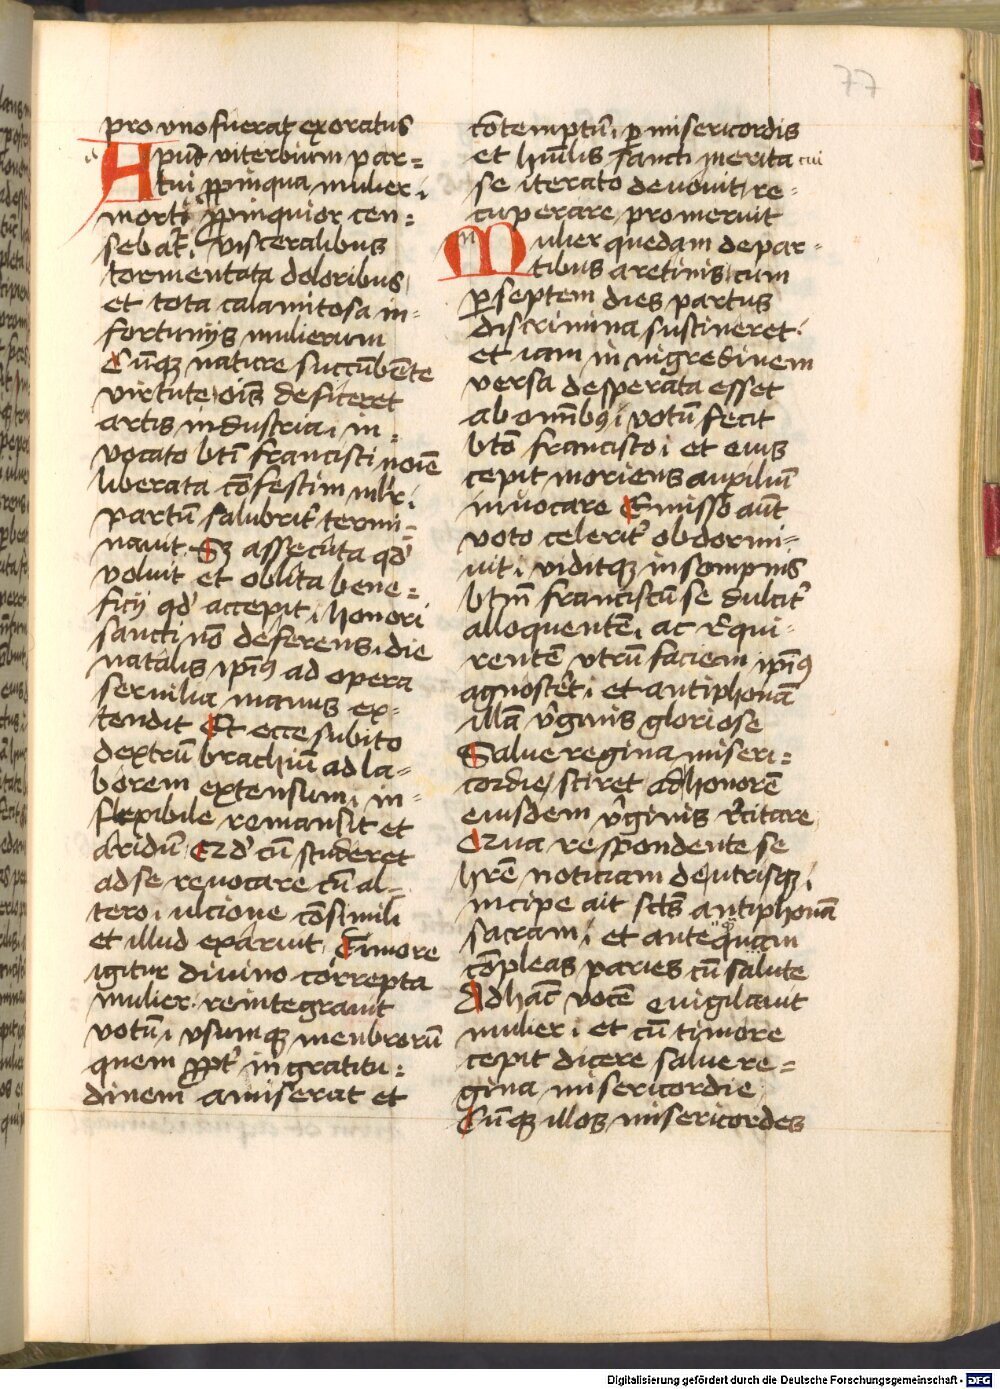 77
pro vno fuerat exoratus
Apud viterbium par=
tui ꝓpinqua mulier
morti ꝓpinquior cen=
sebat᷑ visceralibus
tormentata doloribus
et tota calamitosa in-
fortunijs mulierum
Cūqꝫ nature succūbēte
virtute oīs deficeret
artis industria in=
vocato btī francisci noīe
liberata cōfestim mlr
partū salubrit᷑ termi=
nauit Sꝫ assecuta qd̕
voluit et oblita bene=
ficij qd̕ accepit honori
sancti nō deferens die
natalis ip̄iꝯ ad opera
seruilia manus ex-
tendit Et ecce subito
dextrū brachiū ad la-
borem extensum in-
flexibile remansit et
aridū Qd̕ cū studeret
ad se reuocare cū al-
tero vlcione cōsimili
et illud exaruit Timore
igitur diuino correpta
mulier reintegrauit
votū vsumqꝫ menbrorū
quem ꝓpt᷑ ingratitu=
dinem amiserat et
cōtemptū ꝑ misericordis
et hūilis sancti merita cui
se iterato deuouit re-
cuperare promeruit
Mulier quedam de par-
tibus aretinis cum
ꝑ septem dies partus
discrimina sustineret
et iam in nigredinem
versa desperata esset
ab omībꝯ votū fecit
btō francisco et eius
cepit moriens auxiliū
inuocare Emisso aūt
voto celerit᷑ obdormi-
uit viditqꝫ in sompnis
btm̄ franciscū se dulcit᷑
alloquentē ac requi-
rentē vtrū faciem ip̄iꝯ
agnosc̄et et antiphonā
illā v̕ginis gloriose
Salue regina miseri=
cordie sciret ad honorē
eiusdem v̕ginis r̕citare
Que respondente se
hr̄e noticiam de vtrisqꝫ
incipe ait sctūs antiphonā
sacram et antequam
cōpleas paries cū salute
Ad hāc vocē euigilauit
mulier et cū timore
cepit dicere salue re=
gina misericordie
Cūqꝫ illos misericordes
Digitalisierung gefördert durch die Deutsche Forschungsgemeinschaft - DFG